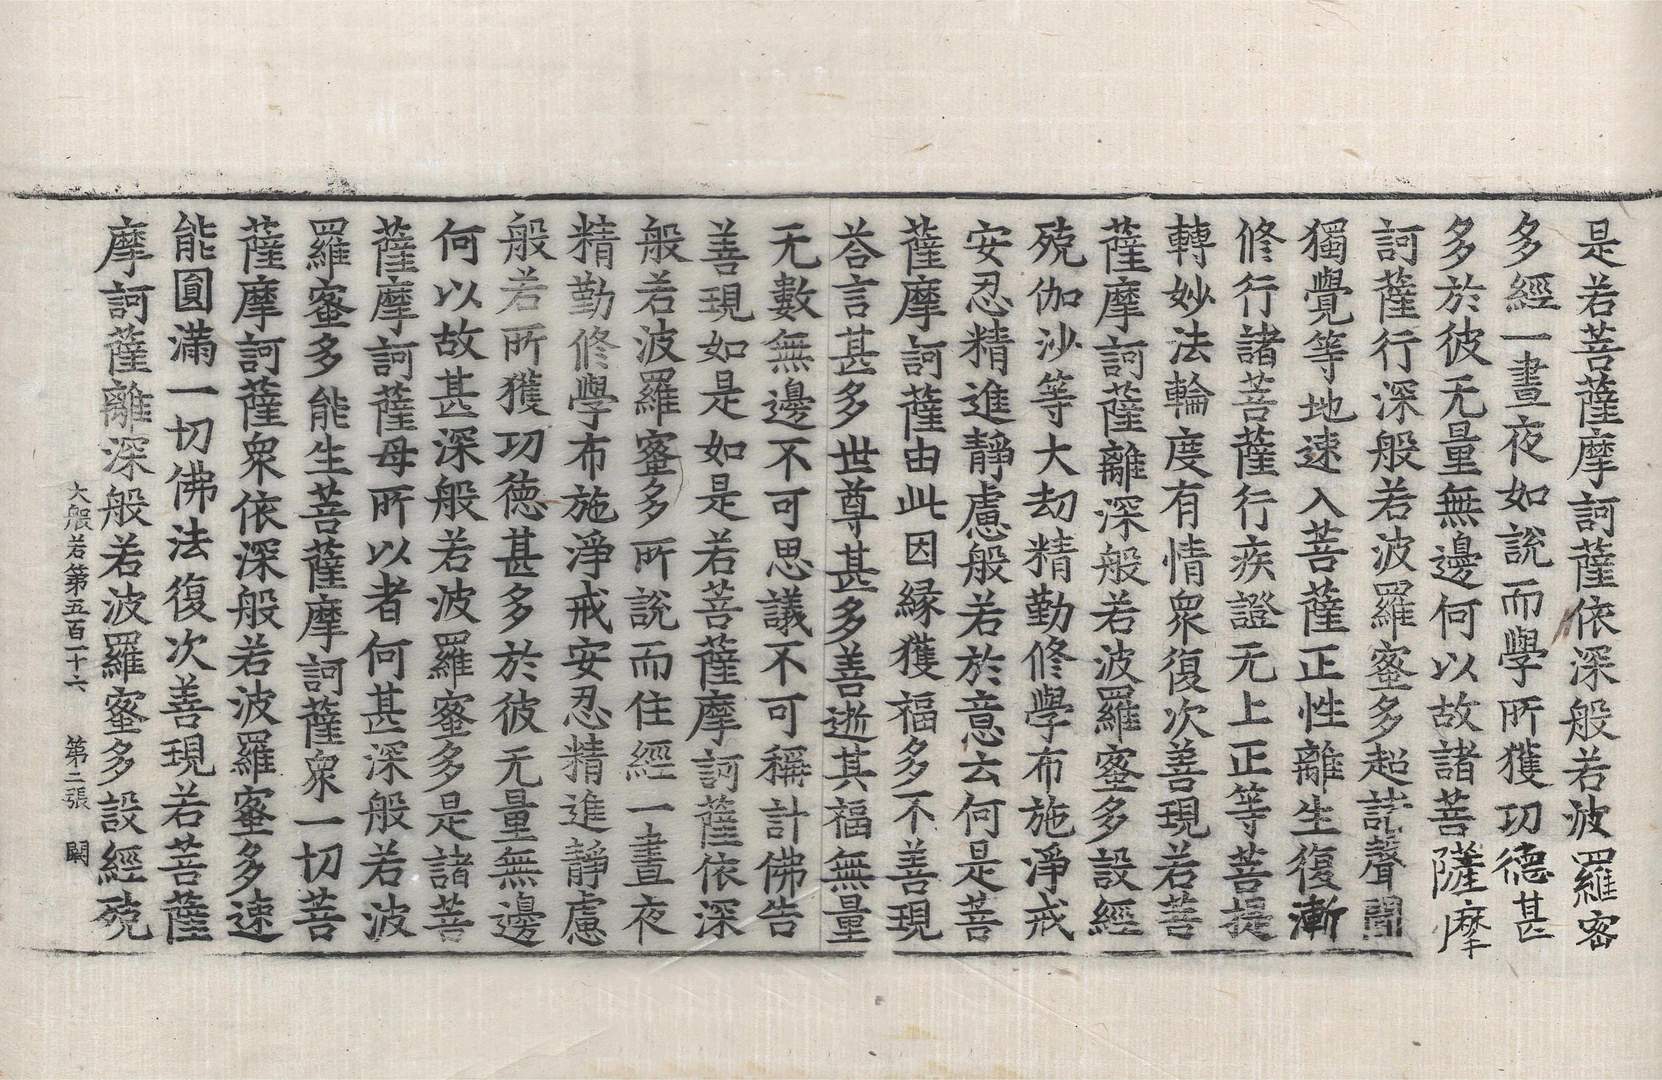 是若菩薩摩訶薩依深般若波羅密
多經一晝夜如說而學所獲功德甚
多於彼无量無邊何以故諸菩薩摩
訶薩行深般若波羅蜜多超諸聲聞
獨覺等地速入菩薩正性離生復漸
修行諸菩薩行疾證无上正等菩提
轉妙法輪度有情衆復次善現若菩
薩摩訶薩離深般若波羅蜜多設經
殑伽沙等大劫精勤修學布施淨戒
安忍精進靜慮般若於意云何是菩
薩摩訶薩由此因緣獲福多不善現
荅言甚多世尊甚多善逝其福無量
无數無邊不可思議不可稱計佛告
善現如是如是若菩薩摩訶薩依深
般若波羅蜜多所說而住經一晝夜
精勤修學布施淨戒安忍精進靜慮
般若所獲功德甚多於彼无量無邊
何以故甚深般若波羅蜜多是諸菩
薩摩訶薩母所以者何甚深般若波
羅蜜多能生菩薩摩訶薩衆一切菩
薩摩訶薩衆依深般若波羅蜜多速
能圓滿一切佛法復次善現若菩薩
摩訶薩離深般若波羅蜜多設經殑
大般若第五百一十六 第二張 闕